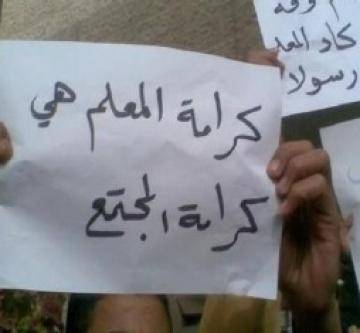 كرامة المعلم هي
كرامة المجتمع
كاد المعل
رسولا